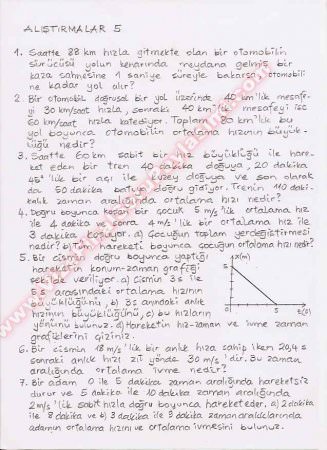 ALIŞTIRMALAR 5
1. Saatte 88 km hızla gitmekte olan bir otomobilin
sürücüsü yolun kenarında meydana gelmiş bir
kaza sahnesine 1 saniye süreyle bakarsa otomobili
ne kadar yol alır?
2. Bir otomobil doğrusal bir yol üzerinde 40 km'lik mesafe-
yi 30 km/saat hızla, sonraki 40 km'lik mesafeyi ise
60 km/saat hızla katediyor. Toplam 80 km'lik bu
yol boyunca otomobilin ortalama hızının büyük-
lüğü nedir?
3. Saatte 60 km sabit bir hız büyüklüğü ile hare-
ket eden bir tren 40 dakika doğuya, 20 dakika
45° lik bir açı ile kuzey doğuya ve son olarak
da 50 dakika batıya doğru gidiyor. Trenin 110 daki-
kalık zaman aralığında ortalama hızı nedir?
4. Doğru boyunca koşan bir çocuk 5 m/s'lik ortalama hız
ile 4 dakika ve sonra 4 m/s'lik bir ortalama hız ile
3 dakika koşuyor. a) Çocuğun toplam yerdeğiştirmesi
nedir? b) Tüm hareketi boyunca çocuğun ortalama hızı nedir?
5. Bir cismin doğru boyunca yaptığı
hareketin konum-zaman grafiği
şekilde veriliyor. a) Cismin 3s ile
5s arasındaki ortalama hızının
büyüklüğünü, b) 3s anındaki anlık
hızının büyüklüğünü, c) bu hızların
yönünü bulunuz. d) Hareketin hız-zaman ve ivme zaman
grafiklerini çiziniz.
x(m)
5
5
t(s)
6. Bir cismin 18 m/s'lik bir anlık hıza sahip iken 20,4 s
sonraki anlık hızı zıt yönde 30 m/s'dir. Bu zaman
aralığında ortalama ivme nedir?
7. Bir adam 0 ile 5 dakika zaman aralığında hareketsiz
durur ve 5 dakika ile 10 dakika zaman aralığında
2 m/s'lik sabit hızla doğru boyunca hareket eder. a) 2 dakika
ile 8 dakika ve b) 3 dakika ile 9 dakika zaman aralıklarında
adamın ortalama hızını ve ortalama ivmesini bulunuz.